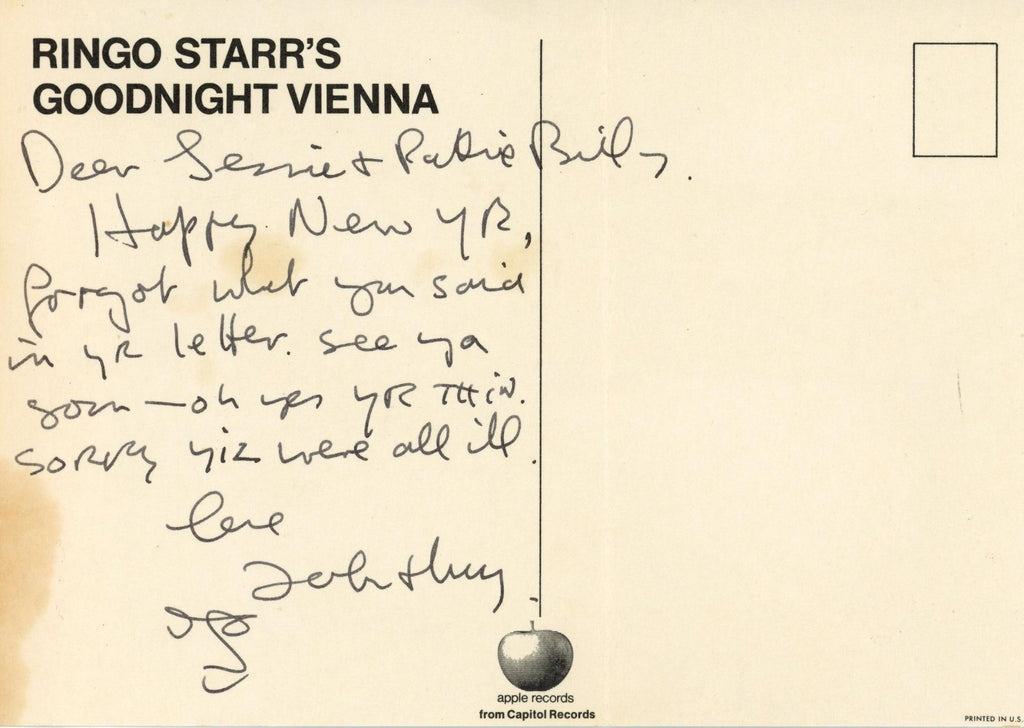 RINGO STARR'S
GOODNIGHT VIENNA
Dear & Pattie Billy.
Happy New YR,
forgot what you said
in yr letter. see ya
soon — oh yes YR THIN.
SORRY yiz were all ill.
love
John &
apple records
from Capitol Records
PRINTED IN U.S.